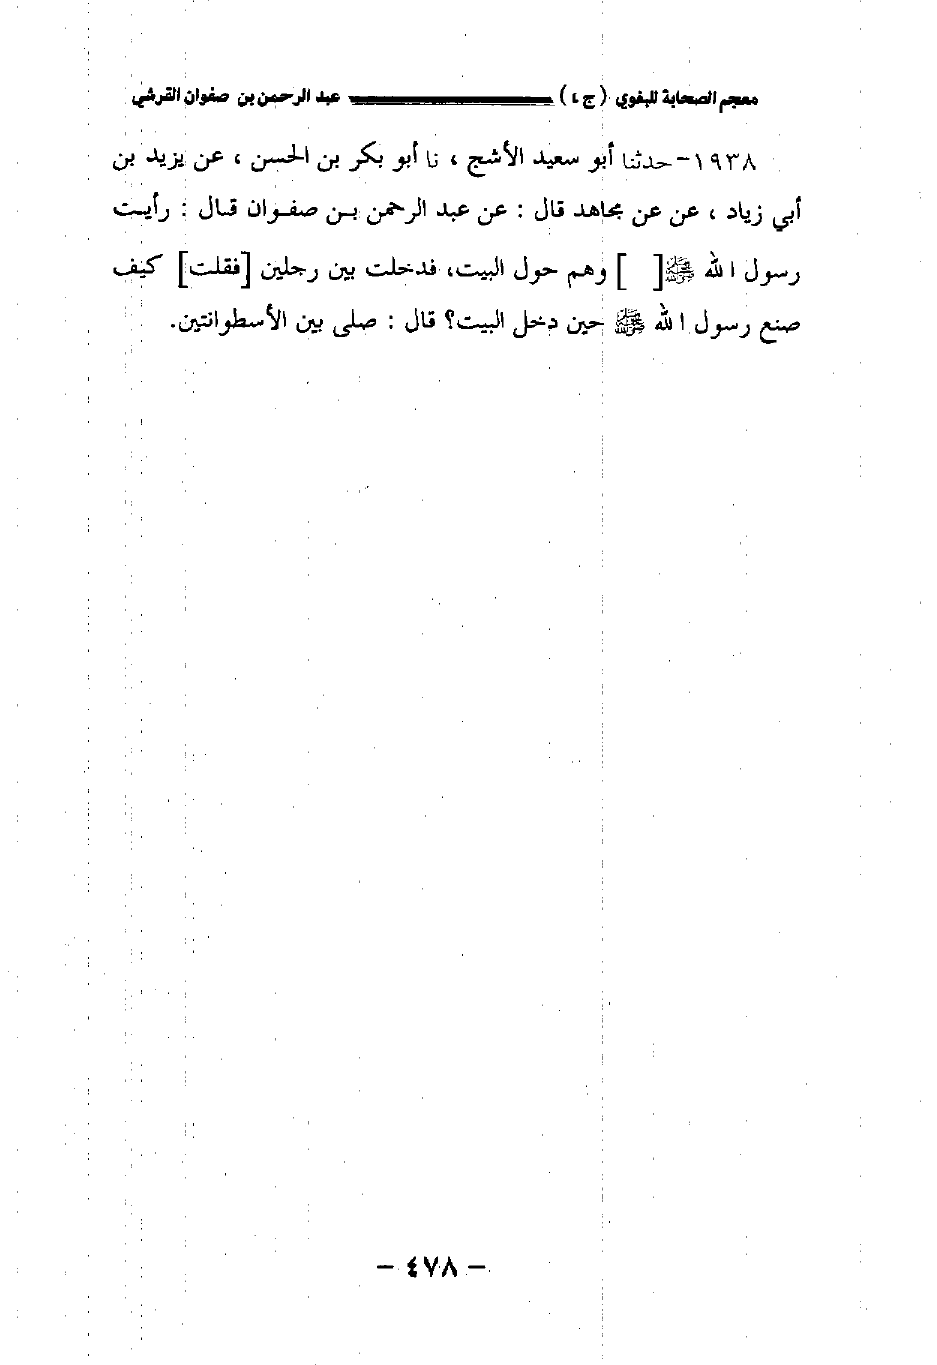 معجم الصحابة للبغوي (ج٤) عبد الرحمن بن صفوان القرشي
١٩٣٨- حدثنا أبو سعيد الأشج ، نا أبو بكر بن الحسن ، عن يزيد بن
أبي زياد ، عن عن مجاهد قال : عن عبد الرحمن بن صفوان قال : رأيت
رسول الله ﷺ [ ] وهم حول البيت، فدخلت بين رجلين [فقلت] كيف
صنع رسول الله ﷺ حين دخل البيت؟ قال : صلى بين الأسطوانتين.
- ٤٧٨ -